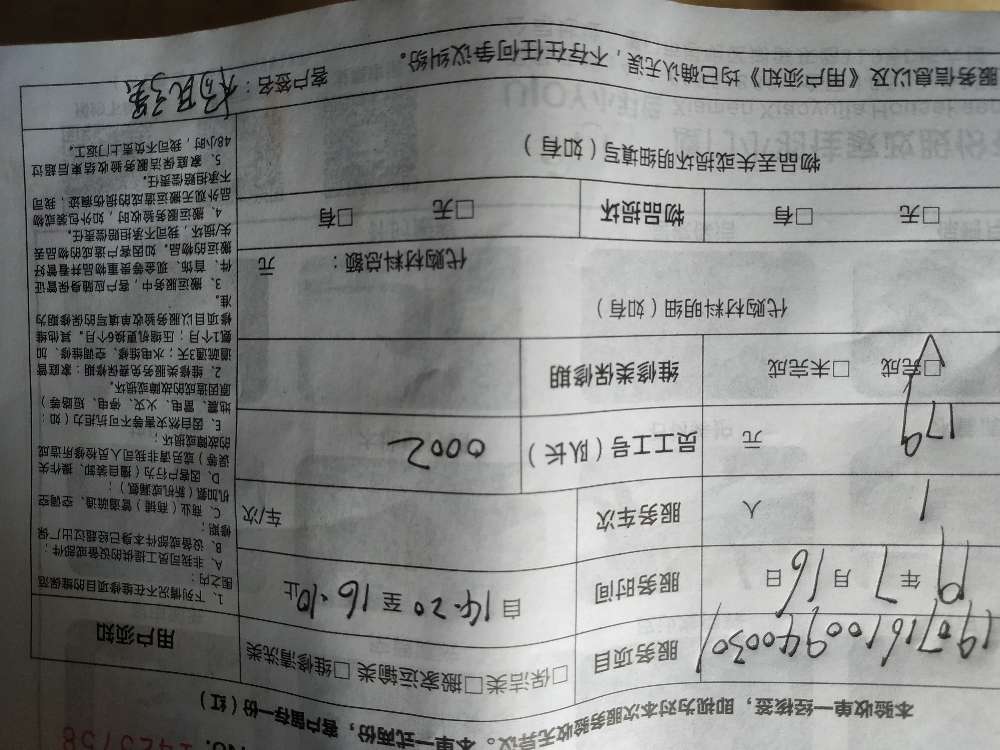 本验收单一经核签，即视为对本次服务验收无异议。本单一式两份，客户留存一份（红）
服务项目
□保洁类□搬家运输类 □维修清洗类
用户须知
19年7月16日
服务时间
自14.20至16.10止
1人
服务车次
车/次
179元
员工工号（队长）
0002
□完成 □未完成
维修类保修期
代购材料明细（如有）
代购材料总额： 元
□无 □有
物品损坏
□无 □有
物品丢失或损坏明细填写（如有）
1、下列情况不在维修项目的维保范
围之内：
A、非我司员工提供的设备或部件；
B、设备或部件本身已经超过出厂保
修期；
C、商业（商铺）管道疏通、空调空
机加氨（新机或漏氨）；
D、因客户行为（擅自装卸、操作失
误等）或另请非我司人员检修所造成
的故障或损坏；
E、因自然灾害等不可抗拒力（如：
地震、雷电、火灾、停电、短路等）
原因造成的故障或损坏。
2、维修类服务免费保修期：家庭管
道疏通3天；水电维修、空调维修、加
氨1个月；压缩机更换6个月。其他维
修项目以服务验收单填写的保修期为
准。
3、搬运服务中，客户应随身保管证
件、首饰、现金等贵重物品并看管好
搬运的物品。如因客户造成的物品丢
失损坏，我司不承担赔偿责任。
4、搬运服务验收时，如外包装或物
品外观无搬运造成的损伤痕迹，我司
不承担赔偿责任。
5、家庭保洁服务验收结束后超过
48小时，我司不负责上门返工。
服务信息以及《用户须知》均已确认无误，不存在任何争议纠纷。
客户签名：